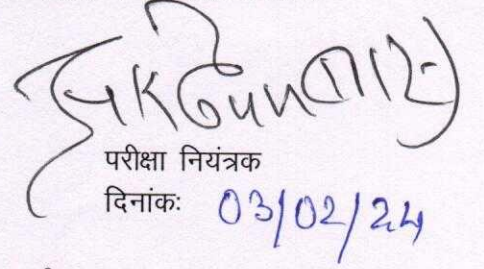 परीक्षा नियंत्रक
दिनांकः 03/02/24